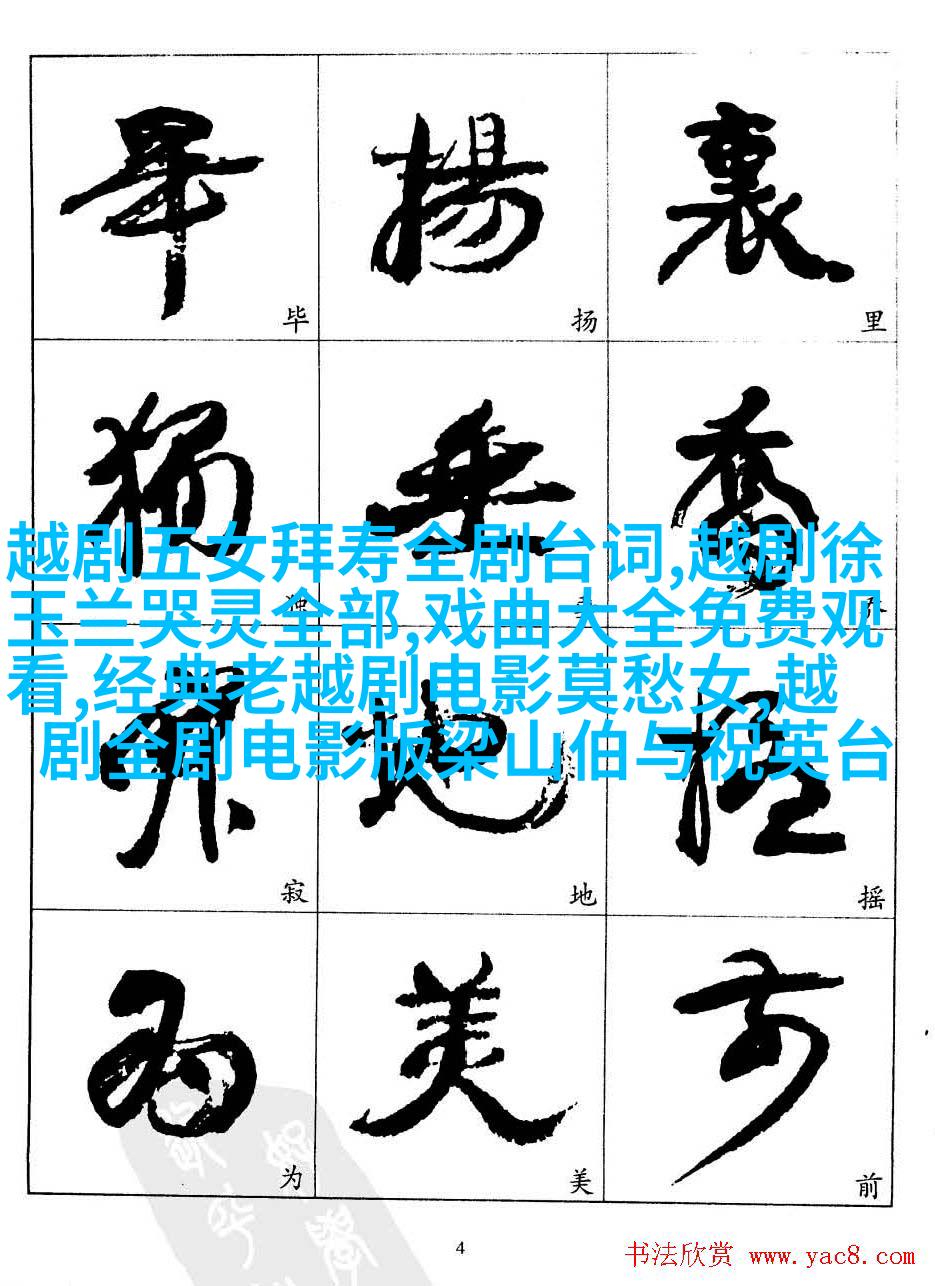 毕 扬 里
毕 扬 里
独 垂 乔
越剧五女拜寿全剧台词,越剧徐
玉兰哭灵全部,戏曲大全免费观
看,经典老越剧电影莫愁女,越
剧全剧电影版梁山伯与祝英台
寂 地 摇
为 美 前
为 美 前
4
书法欣赏 www.yac8.com